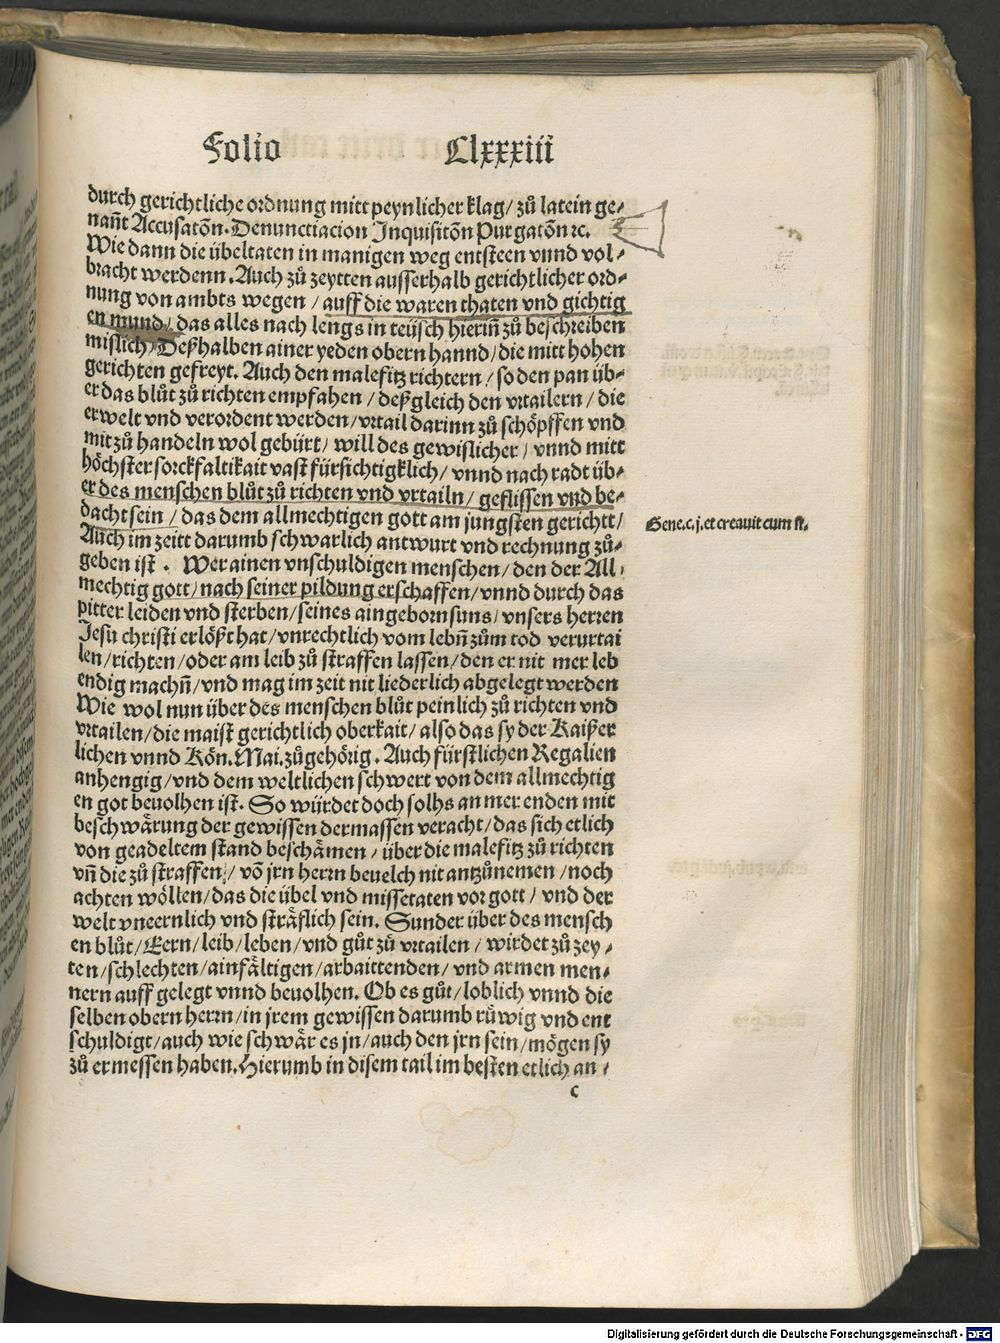 Folio Clxxxiii
durch gerichtliche ordnung mitt peynlicher klag/ zů latein ge⸗
nañt Accusatõn. Denunctiacion Inquisitõn Purgatõn ꝛc.
Wie dann die übeltaten in manigen weg entsteen vnnd vol⸗
bracht werdenn. Auch zů zeytten ausserhalb gerichtlicher ord⸗
nung von ambts wegen / auff die waren thaten vnd gichtig
en mund/ das alles nach lengs in teüsch hieriñ zů beschreiben
mislich/ Deßhalben ainer yeden obern hannd/ die mitt hohen
gerichten gefreyt. Auch den malefitz richtern / so den pan üb⸗
er das blůt zů richten empfahen / deßgleich den vrtailern / die
erwelt vnd verordent werden/ vrtail darinn zů schöpffen vnd
mitzů handeln wol gebürt/ will des gewislicher / vnnd mitt
höchster sorckfaltikait vast fürsichtigklich/ vnnd nach radt üb⸗
er des menschen blůt zů richten vnd vrtailn/ geflissen vnd be⸗
dacht sein / das dem allmechtigen gott am jungsten gerichtt/
Auch im zeitt darumb schwarlich antwurt vnd rechnung zů⸗
geben ist . Wer ainen vnschuldigen menschen/ den der All⸗
mechtig gott/ nach seiner pildung erschaffen/ vnnd durch das
pitter leiden vnd sterben/ seines aingebornsuns/ vnsers herren
Jesu christi erlößt hat/ vnrechtlich vom lebñ zům tod verurtai
len/ richten/ oder am leib zů straffen lassen/ den er nit mer leb
endig machñ/ vnd mag im zeit nit liederlich abgelegt werden
Wie wol nun über des menschen blůt peinlich zů richten vnd
vrtailen/ die maist gerichtlich oberkait/ also das sy der Kaißer
lichen vnnd Kön. Mai. zůgehörig. Auch fürstlichen Regalien
anhengig/ vnd dem weltlichen schwert von dem allmechtig
en got beuolhen ist. So würdet doch solhs an mer enden mit
beschwärung der gewissen dermassen veracht/ das sich etlich
von geadeltem stand beschämen / über die malefitz zů richten
vñ die zů straffen/ võ jrn herrn beuelch nit antzůnemen / noch
achten wöllen/ das die übel vnd missetaten vor gott / vnd der
welt vneernlich vnd sträflich sein. Sunder über des mensch
en blůt/ Eern/ leib/ leben/ vnd gůt zů vrtailen / wirdet zů zey⸗
ten/ schlechten/ ainfältigen/ arbaittenden/ vnd armen men⸗
nern auff gelegt vnnd beuolhen. Ob es gůt/ loblich vnnd die
selben obern herrn/ in jrem gewissen darumb rüwig vnd ent
schuldigt/ auch wie schwär es jn/ auch den jrn sein/ mögen sy
zů ermessen haben. Hierumb in disem tail im besten etlich an⸗
c
Gene. c. j. et creauit eum ꝛc.
Digitalisierung gefördert durch die Deutsche Forschungsgemeinschaft - DFG